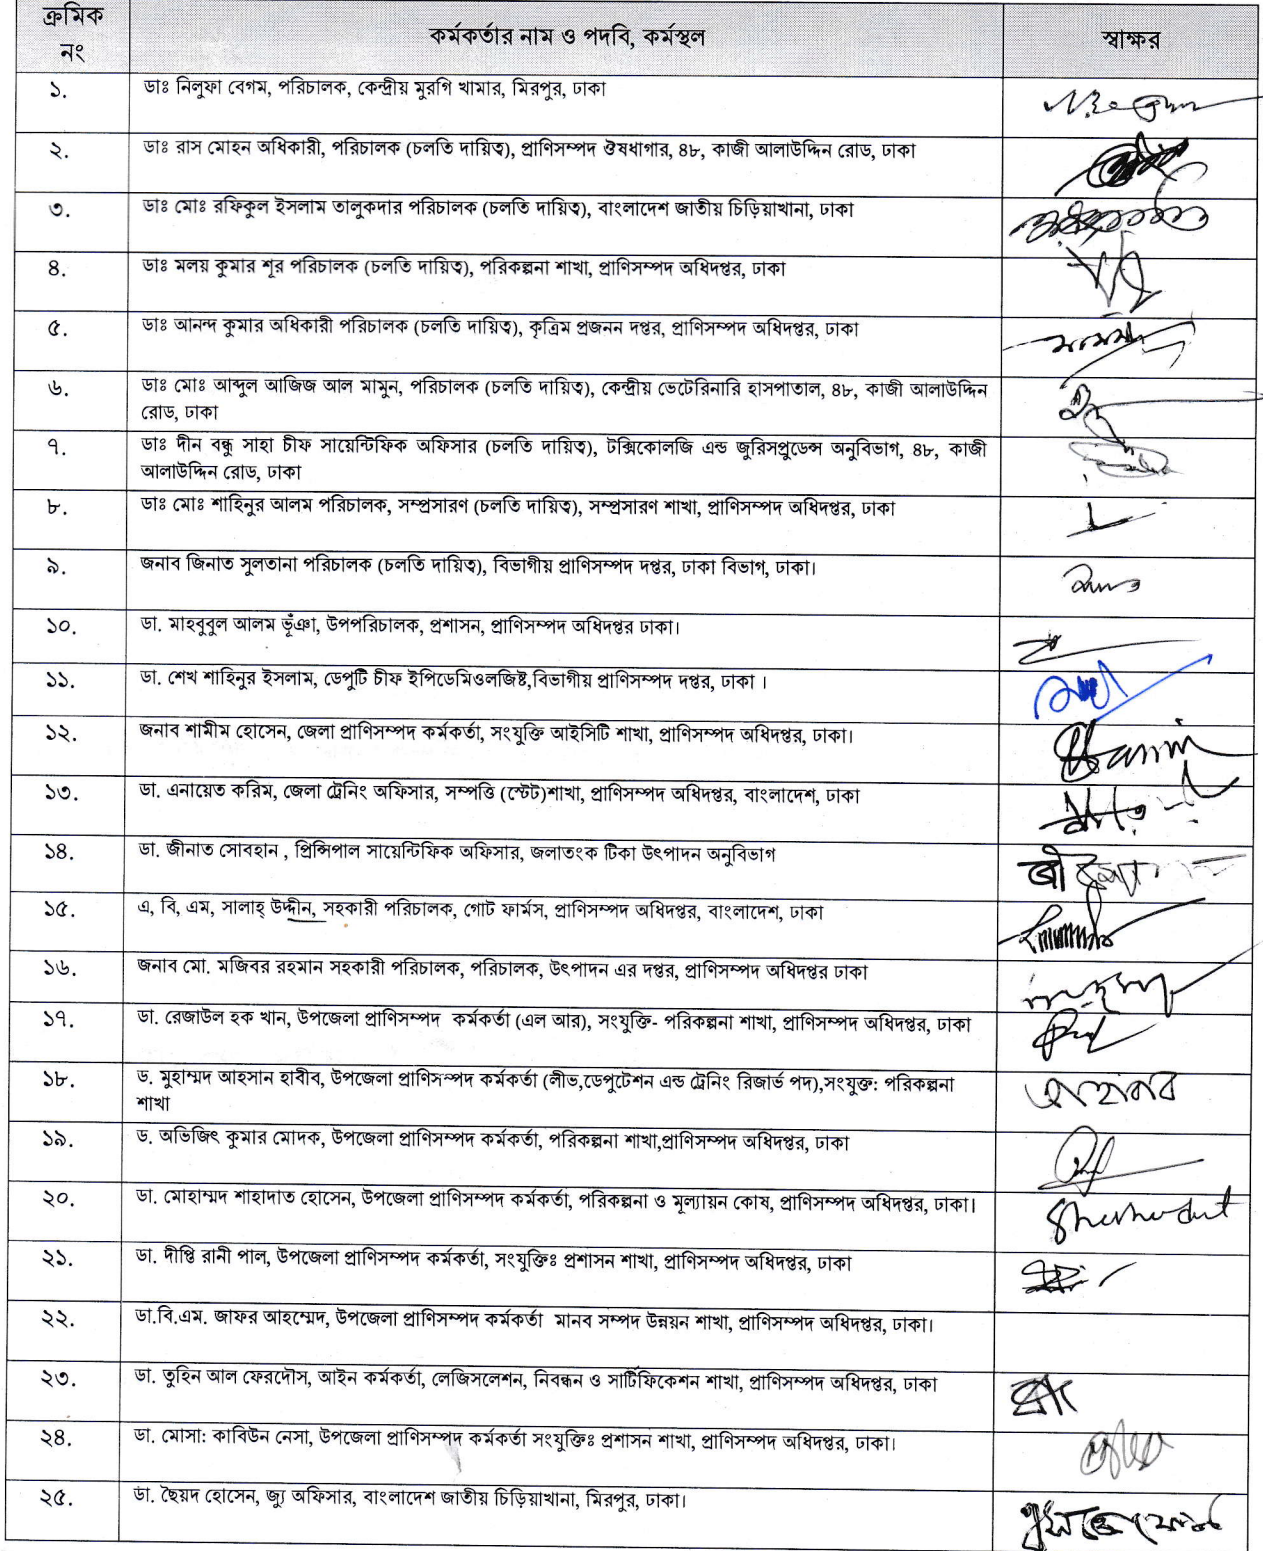 ক্রমিক নং	কর্মকর্তার নাম ও পদবি, কর্মস্থল	স্বাক্ষর
১.	ডাঃ নিলুফা বেগম, পরিচালক, কেন্দ্রীয় মুরগি খামার, মিরপুর, ঢাকা
২.	ডাঃ রাস মোহন অধিকারী, পরিচালক (চলতি দায়িত্ব), প্রাণিসম্পদ ঔষধাগার, ৪৮, কাজী আলাউদ্দিন রোড, ঢাকা
৩.	ডাঃ মোঃ রফিকুল ইসলাম তালুকদার পরিচালক (চলতি দায়িত্ব), বাংলাদেশ জাতীয় চিড়িয়াখানা, ঢাকা
৪.	ডাঃ মলয় কুমার শূর পরিচালক (চলতি দায়িত্ব), পরিকল্পনা শাখা, প্রাণিসম্পদ অধিদপ্তর, ঢাকা
৫.	ডাঃ আনন্দ কুমার অধিকারী পরিচালক (চলতি দায়িত্ব), কৃত্রিম প্রজনন দপ্তর, প্রাণিসম্পদ অধিদপ্তর, ঢাকা
৬.	ডাঃ মোঃ আব্দুল আজিজ আল মামুন, পরিচালক (চলতি দায়িত্ব), কেন্দ্রীয় ভেটেরিনারি হাসপাতাল, ৪৮, কাজী আলাউদ্দিন
রোড, ঢাকা
৭.	ডাঃ দীন বন্ধু সাহা চীফ সায়েন্টিফিক অফিসার (চলতি দায়িত্ব), টক্সিকোলজি এন্ড জুরিসপ্রুডেন্স অনুবিভাগ, ৪৮, কাজী
আলাউদ্দিন রোড, ঢাকা
৮.	ডাঃ মোঃ শাহিনুর আলম পরিচালক, সম্প্রসারণ (চলতি দায়িত্ব), সম্প্রসারণ শাখা, প্রাণিসম্পদ অধিদপ্তর, ঢাকা
৯.	জনাব জিনাত সুলতানা পরিচালক (চলতি দায়িত্ব), বিভাগীয় প্রাণিসম্পদ দপ্তর, ঢাকা বিভাগ, ঢাকা।
১০.	ডা. মাহবুবুল আলম ভূঁঞা, উপপরিচালক, প্রশাসন, প্রাণিসম্পদ অধিদপ্তর ঢাকা।
১১.	ডা. শেখ শাহিনুর ইসলাম, ডেপুটি চীফ ইপিডেমিওলজিষ্ট,বিভাগীয় প্রাণিসম্পদ দপ্তর, ঢাকা ।
১২.	জনাব শামীম হোসেন, জেলা প্রাণিসম্পদ কর্মকর্তা, সংযুক্তি আইসিটি শাখা, প্রাণিসম্পদ অধিদপ্তর, ঢাকা।
১৩.	ডা. এনায়েত করিম, জেলা ট্রেনিং অফিসার, সম্পত্তি (স্টেট)শাখা, প্রাণিসম্পদ অধিদপ্তর, বাংলাদেশ, ঢাকা
১৪.	ডা. জীনাত সোবহান , প্রিন্সিপাল সায়েন্টিফিক অফিসার, জলাতংক টিকা উৎপাদন অনুবিভাগ
১৫.	এ, বি, এম, সালাহ্ উদ্দীন, সহকারী পরিচালক, গোট ফার্মস, প্রাণিসম্পদ অধিদপ্তর, বাংলাদেশ, ঢাকা
১৬.	জনাব মো. মজিবর রহমান সহকারী পরিচালক, পরিচালক, উৎপাদন এর দপ্তর, প্রাণিসম্পদ অধিদপ্তর ঢাকা
১৭.	ডা. রেজাউল হক খান, উপজেলা প্রাণিসম্পদ কর্মকর্তা (এল আর), সংযুক্তি- পরিকল্পনা শাখা, প্রাণিসম্পদ অধিদপ্তর, ঢাকা
১৮.	ড. মুহাম্মদ আহসান হাবীব, উপজেলা প্রাণিসম্পদ কর্মকর্তা (লীভ,ডেপুটেশন এন্ড ট্রেনিং রিজার্ভ পদ),সংযুক্ত: পরিকল্পনা
শাখা
১৯.	ড. অভিজিৎ কুমার মোদক, উপজেলা প্রাণিসম্পদ কর্মকর্তা, পরিকল্পনা শাখা,প্রাণিসম্পদ অধিদপ্তর, ঢাকা
২০.	ডা. মোহাম্মদ শাহাদাত হোসেন, উপজেলা প্রাণিসম্পদ কর্মকর্তা, পরিকল্পনা ও মূল্যায়ন কোষ, প্রাণিসম্পদ অধিদপ্তর, ঢাকা।
২১.	ডা. দীপ্তি রানী পাল, উপজেলা প্রাণিসম্পদ কর্মকর্তা, সংযুক্তিঃ প্রশাসন শাখা, প্রাণিসম্পদ অধিদপ্তর, ঢাকা
২২.	ডা.বি.এম. জাফর আহম্মেদ, উপজেলা প্রাণিসম্পদ কর্মকর্তা মানব সম্পদ উন্নয়ন শাখা, প্রাণিসম্পদ অধিদপ্তর, ঢাকা।
২৩.	ডা. তুহিন আল ফেরদৌস, আইন কর্মকর্তা, লেজিসলেশন, নিবন্ধন ও সার্টিফিকেশন শাখা, প্রাণিসম্পদ অধিদপ্তর, ঢাকা
২৪.	ডা. মোসা: কাবিউন নেসা, উপজেলা প্রাণিসম্পদ কর্মকর্তা সংযুক্তিঃ প্রশাসন শাখা, প্রাণিসম্পদ অধিদপ্তর, ঢাকা।
২৫.	ডা. ছৈয়দ হোসেন, জ্যু অফিসার, বাংলাদেশ জাতীয় চিড়িয়াখানা, মিরপুর, ঢাকা।